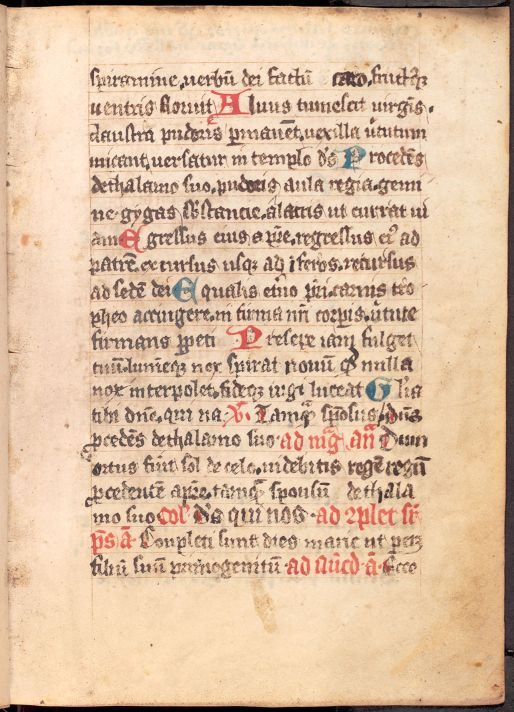 spiramine, verbū dei factū caro, fructꝰqꝫ
ventris floruit Alvus tumescit virgīs.
claustra pudoris permanēt, vexilla virtutum
micant, versatur in templo dꝰs Procedēs
de thalamo suo, pudoris aula regia, gemi
ne gygas sbstancie, alacris ut currat vi
am Egressus eius a pre, regressus eiꝰ ad
patrē, excursus usqꝫ ad īferos, recursus
ad sedē dei Equalis etno pri, carnis tro
pheo accingere, infirma nri corpis, virtute
firmans ppeti Presepe iam fulget
tuū, lumēqꝫ nox spirat novū qd nulla
nox interpolet, fideqꝫ iugi luceat Glīa
tibi dne, qui na V. Tamqꝫ sposus, dns
pcedēs de thalamo suo ad mg an Dum
ortus fuit sol de celo, videbitis regē regū
pcedentē a pre, tamqꝫ sponsū de thala
mo suo Col Ds qui nos ad cplet sr
ps a Conpleti sunt dies marie ut par
filiū suū primogenitū ad nucd a Ecce